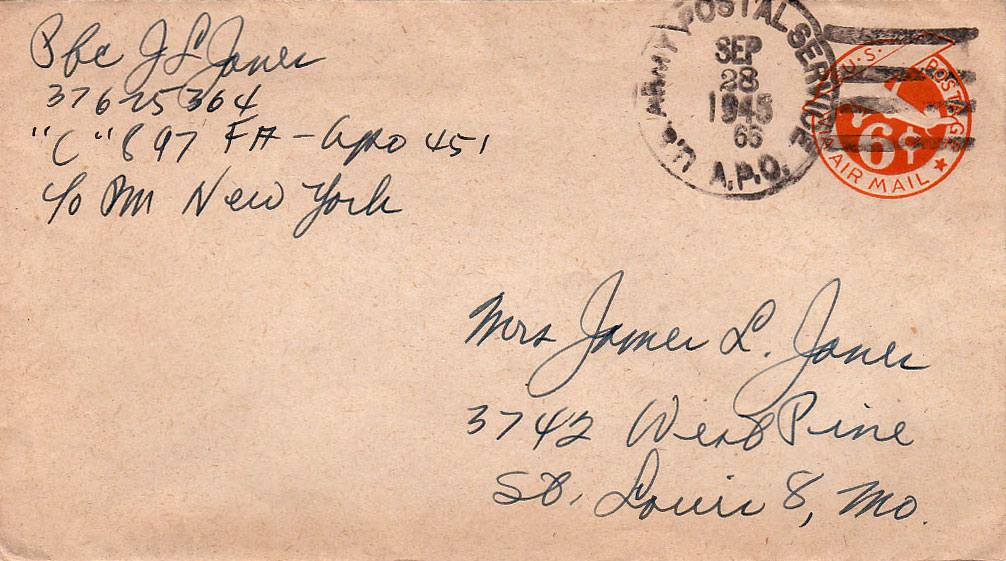 Pfc J L Jones
37625364
"C" 897 FA - APO 451
c/o PM New York
U.S. ARMY POSTAL SERVICE
SEP
28
1945
66
A.P.O.
U.S. POSTAGE
6¢
VIA AIR MAIL
Mrs James L. Jones
3742 West Pine
St. Louis 8, Mo.